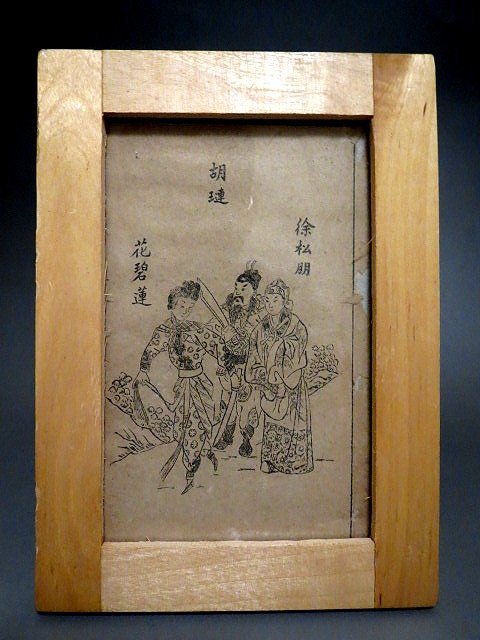 徐松朋
胡璉
花碧蓮